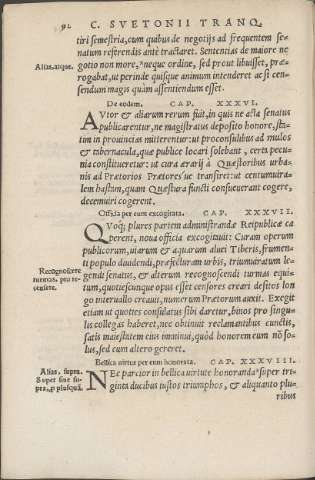 92 C. SVETONII TRANQ.
tiri semestria, cum quibus de negotijs ad frequentem se-
natum referendis ante tractaret. Sententias de maiore ne
Aliàs, atque. gotio non more, *neque ordine, sed prout libuisset, præ-
rogabat, ut perinde quisque animum intenderet ac si cen-
sendum magis quàm assentiendum esset.
De eodem. CAP. XXXVI.
AVtor & aliarum rerum fuit, in quis ne acta senatus
publicarentur, ne magistratus deposito honore, sta-
tim in prouincias mitterentur: ut proconsulibus ad mulos
& tabernacula, quæ publice locari solebant, certa pecu-
nia constitueretur: ut cura ærarij à Quæstoribus urba-
nis ad Prætorios Prætores'ue transiret: ut centumuira-
lem hastam, quam Quæstura functi consueuerant cogere,
decemuiri cogerent.
Officia per eum excogitata. CAP. XXXVII.
QVoq; plures partem administrandæ Reipublicæ ca
perent, noua officia excogitauit: Curam operum
publicorum, uiarum & aquarum aluei Tiberis, frumen-
ti populo diuidendi, præfecturam urbis, triumuiratum le-
Recognoscere turmas, pro re-censere. gendi senatus, & alterum recognoscendi turmas equi-
tum, quotiescunque opus esset censores creari desitos lon
go interuallo creauit, numerum Prætorum auxit. Exegit
etiam ut quoties consulatus sibi daretur, binos pro singu-
lis collegas haberet, nec obtinuit reclamantibus cunctis,
satis maiestatem eius imminui, quòd honorem eum nõ so-
lus, sed cum altero gereret.
Bellica uirtus per eum honorata. CAP. XXXVIII.
Aliàs, supra. Super siue su-pra, p plusquã. NEc parcior in bellica uirtute honoranda *super tri-
ginta ducibus iustos triumphos, & aliquanto plu-
ribus